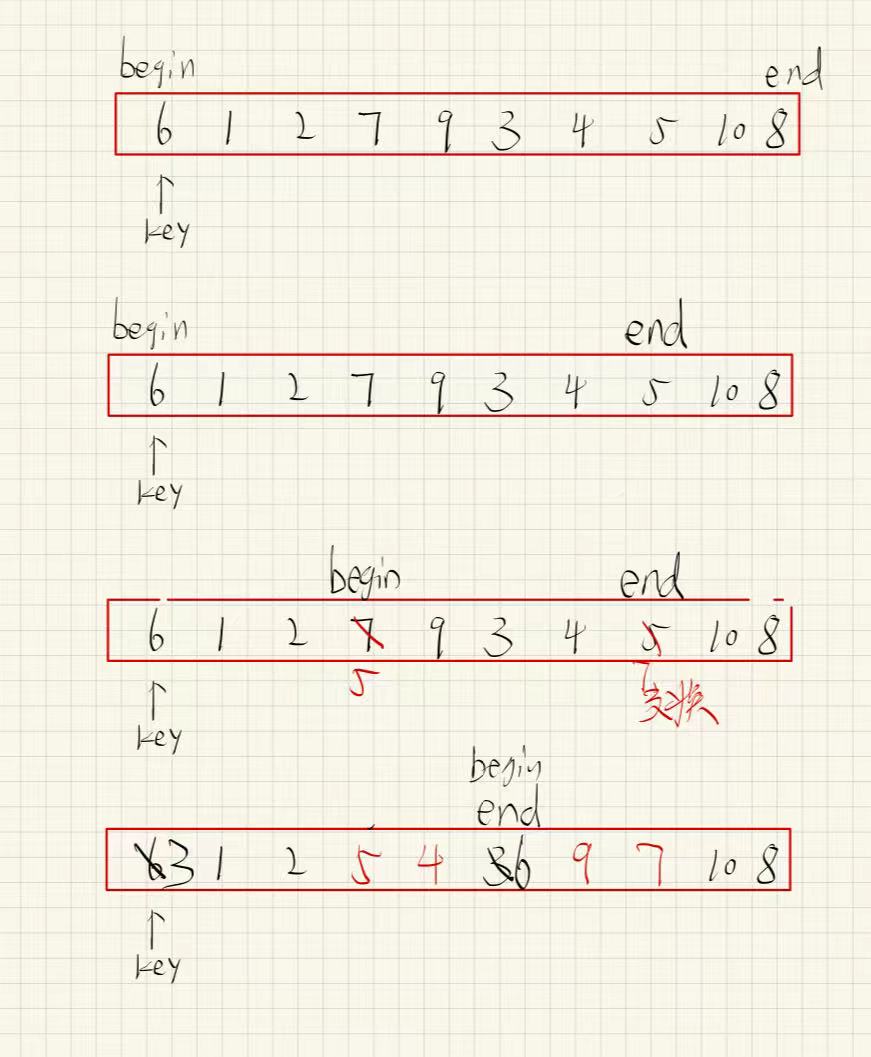 begin end
6 1 2 7 9 3 4 5 10 8
key
begin end
6 1 2 7 9 3 4 5 10 8
key
begin end
6 1 2 7 9 3 4 5 10 8
5 7
key 交换
begin
end
6 3 1 2 5 4 3 6 9 7 10 8
key